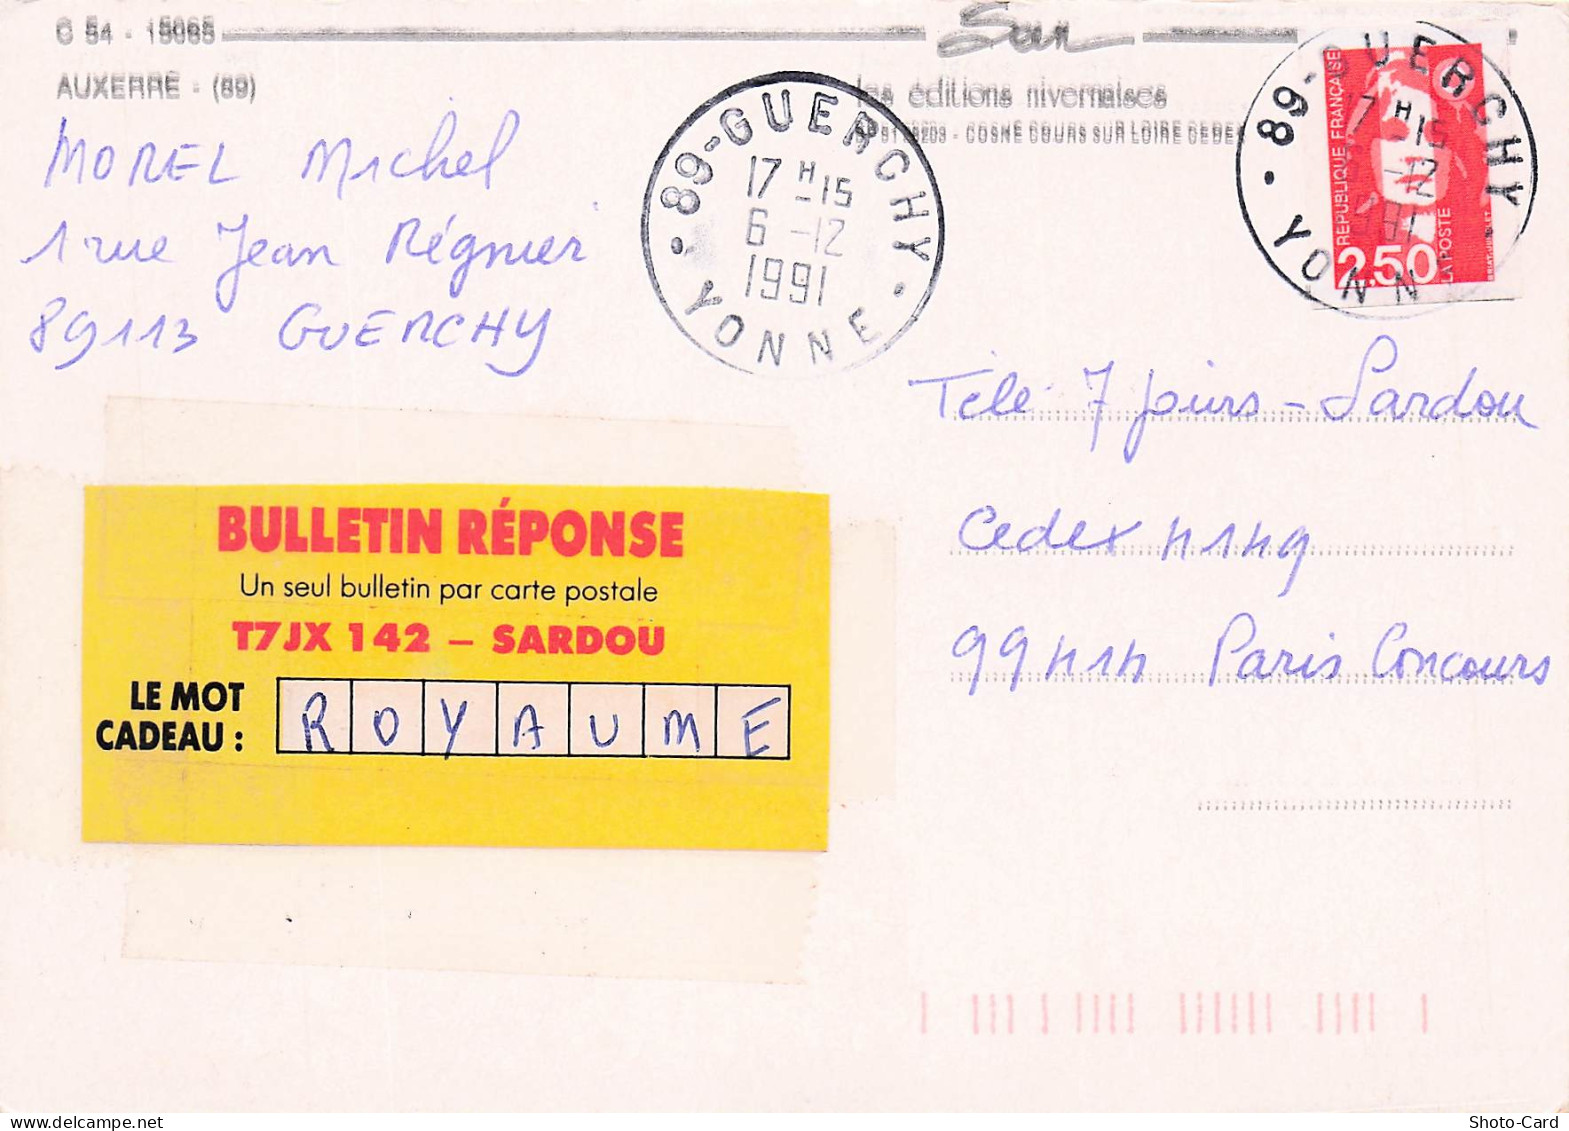 C 54 - 15065
AUXERRE - (89)
les éditions nivernaises
COSNE COURS SUR LOIRE CEDEX
MOREL Michel
1 rue Jean Régnier
89113 GUERCHY
89-GUERCHY
17 H 15
6 -12
1991
YONNE
89-GUERCHY
17 H 15
-12
YONNE
REPUBLIQUE FRANÇAISE
LA POSTE
2.50
Télé 7 jours - Sardou
Cedex 4149
99414 Paris Concours
BULLETIN RÉPONSE
Un seul bulletin par carte postale
T7JX 142 – SARDOU
LE MOT
CADEAU : ROYAUME
Shoto-Card